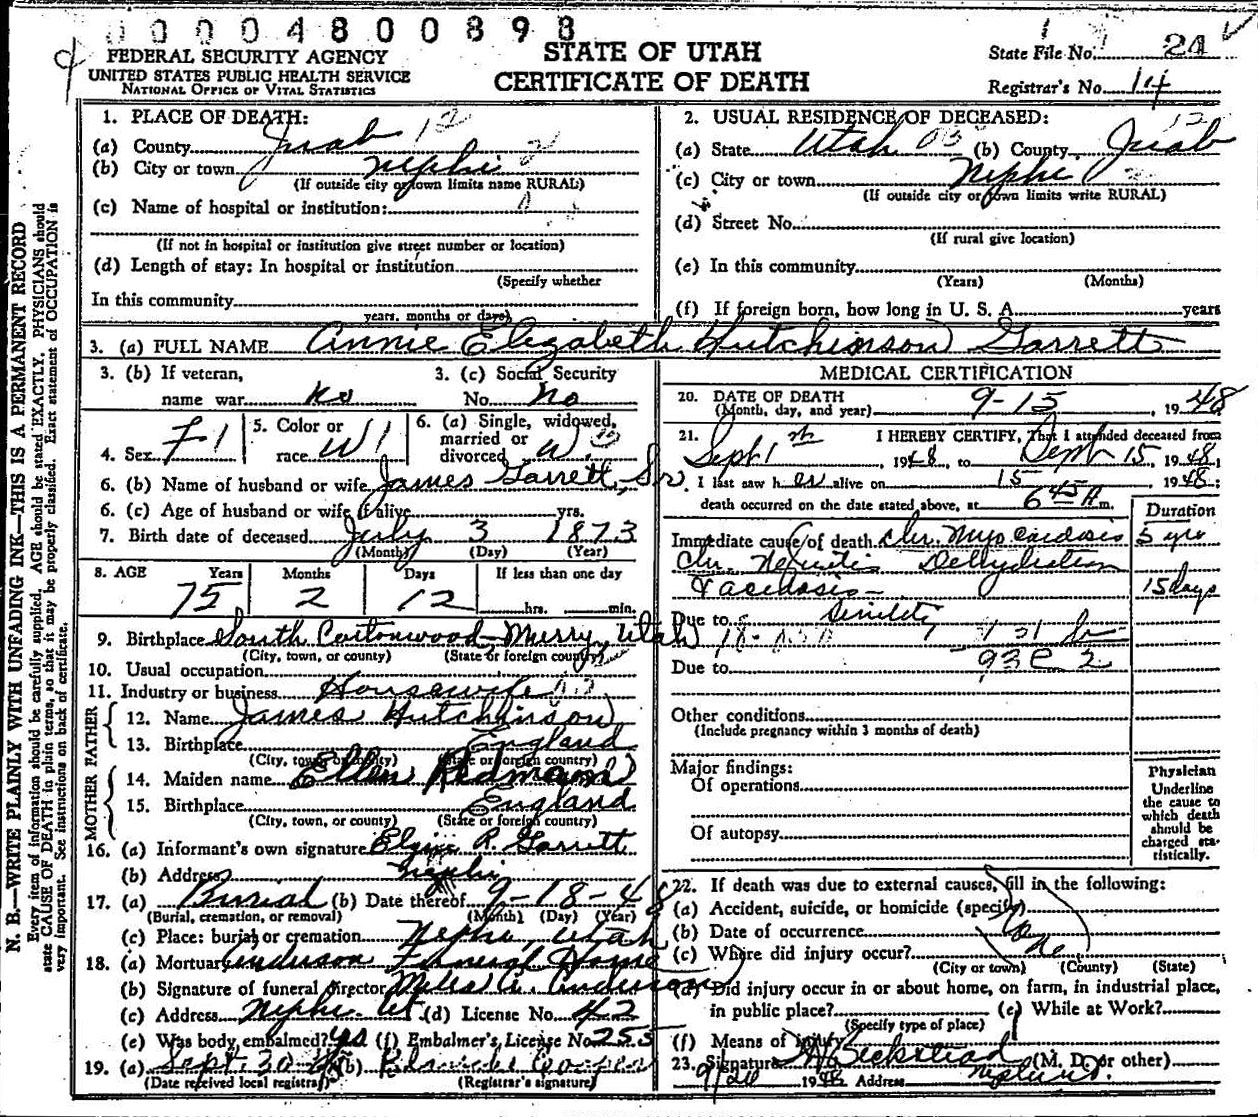 0 0 0 0 4 8 0 0 8 9 8
FEDERAL SECURITY AGENCY
UNITED STATES PUBLIC HEALTH SERVICE
NATIONAL OFFICE OF VITAL STATISTICS
STATE OF UTAH
CERTIFICATE OF DEATH
State File No. 24
Registrar's No. 14
N. B.—WRITE PLAINLY WITH UNFADING INK—THIS IS A PERMANENT RECORD
Every item of information should be carefully supplied. AGE should be stated EXACTLY. PHYSICIANS should
state CAUSE OF DEATH in plain terms, so that it may be properly classified. Exact statement of OCCUPATION is
very important. See instructions on back of certificate.
1. PLACE OF DEATH:
(a) County Juab 12
(b) City or town Nephi 2
(If outside city or town limits name RURAL)
(c) Name of hospital or institution:
(If not in hospital or institution give street number or location)
(d) Length of stay: In hospital or institution
(Specify whether
In this community
years, months or days)
2. USUAL RESIDENCE OF DECEASED: 12
(a) State Utah 03 (b) County Juab
(c) City or town Nephi 2
(If outside city or town limits write RURAL)
(d) Street No.
(If rural give location)
(e) In this community
(Years) (Months)
(f) If foreign born, how long in U. S. A. years
3. (a) FULL NAME Annie Elizabeth Hutchinson Garrett
3. (b) If veteran,
name war no
3. (c) Social Security
No. no
4. Sex F 1
5. Color or
race W 1
6. (a) Single, widowed,
married or
divorced W.
6. (b) Name of husband or wife James Garrett, Sr.
6. (c) Age of husband or wife if alive yrs.
7. Birth date of deceased July 3 1873
(Month) (Day) (Year)
8. AGE Years Months Days If less than one day
75 2 12 hrs. min.
9. Birthplace South Cottonwood-Murry, Utah
(City, town, or county) (State or foreign country)
10. Usual occupation
11. Industry or business Housewife
FATHER
12. Name James Hutchinson
13. Birthplace England
(City, town or county) (State or foreign country)
MOTHER
14. Maiden name Ellen Redmann
15. Birthplace England
(City, town, or county) (State or foreign country)
16. (a) Informant's own signature R. Garrett
(b) Address Nephi
17. (a) Burial (b) Date thereof 9-18-48
(Burial, cremation, or removal) (Month) (Day) (Year)
(c) Place: burial or cremation Nephi, Utah
18. (a) Mortuary Anderson Funeral Home
(b) Signature of funeral director Miles A. Anderson
(c) Address Nephi Ut (d) License No. 42
(e) Was body embalmed? yes (f) Embalmer's License No. 255
19. (a) Sept. 20 48 (b) Blanche Cooper
(Date received local registrar) (Registrar's signature)
MEDICAL CERTIFICATION
20. DATE OF DEATH
(Month, day, and year) 9-15, 1948
21. I HEREBY CERTIFY, That I attended deceased from
Sept 1st, 1948, to Sept 15, 1948,
I last saw her alive on 15 1948;
death occurred on the date stated above, at 645 A m.
Duration
Immediate cause of death Chr. Myocardosis 5 yrs
Chr. Nefritis Dehydration
+ acidosis- 15 days
Due to Senility
Due to 93C 2
Other conditions
(Include pregnancy within 3 months of death)
Major findings:
Of operations
Of autopsy
Physician
Underline
the cause to
which death
should be
charged sta-
tistically.
22. If death was due to external causes, fill in the following:
(a) Accident, suicide, or homicide (specify)
(b) Date of occurrence
(c) Where did injury occur?
(City or town) (County) (State)
(d) Did injury occur in or about home, on farm, in industrial place,
in public place? (e) While at Work?
(Specify type of place)
(f) Means of Injury
23. Signature Beckstead (M. D. or other)
9/20 1948 Address